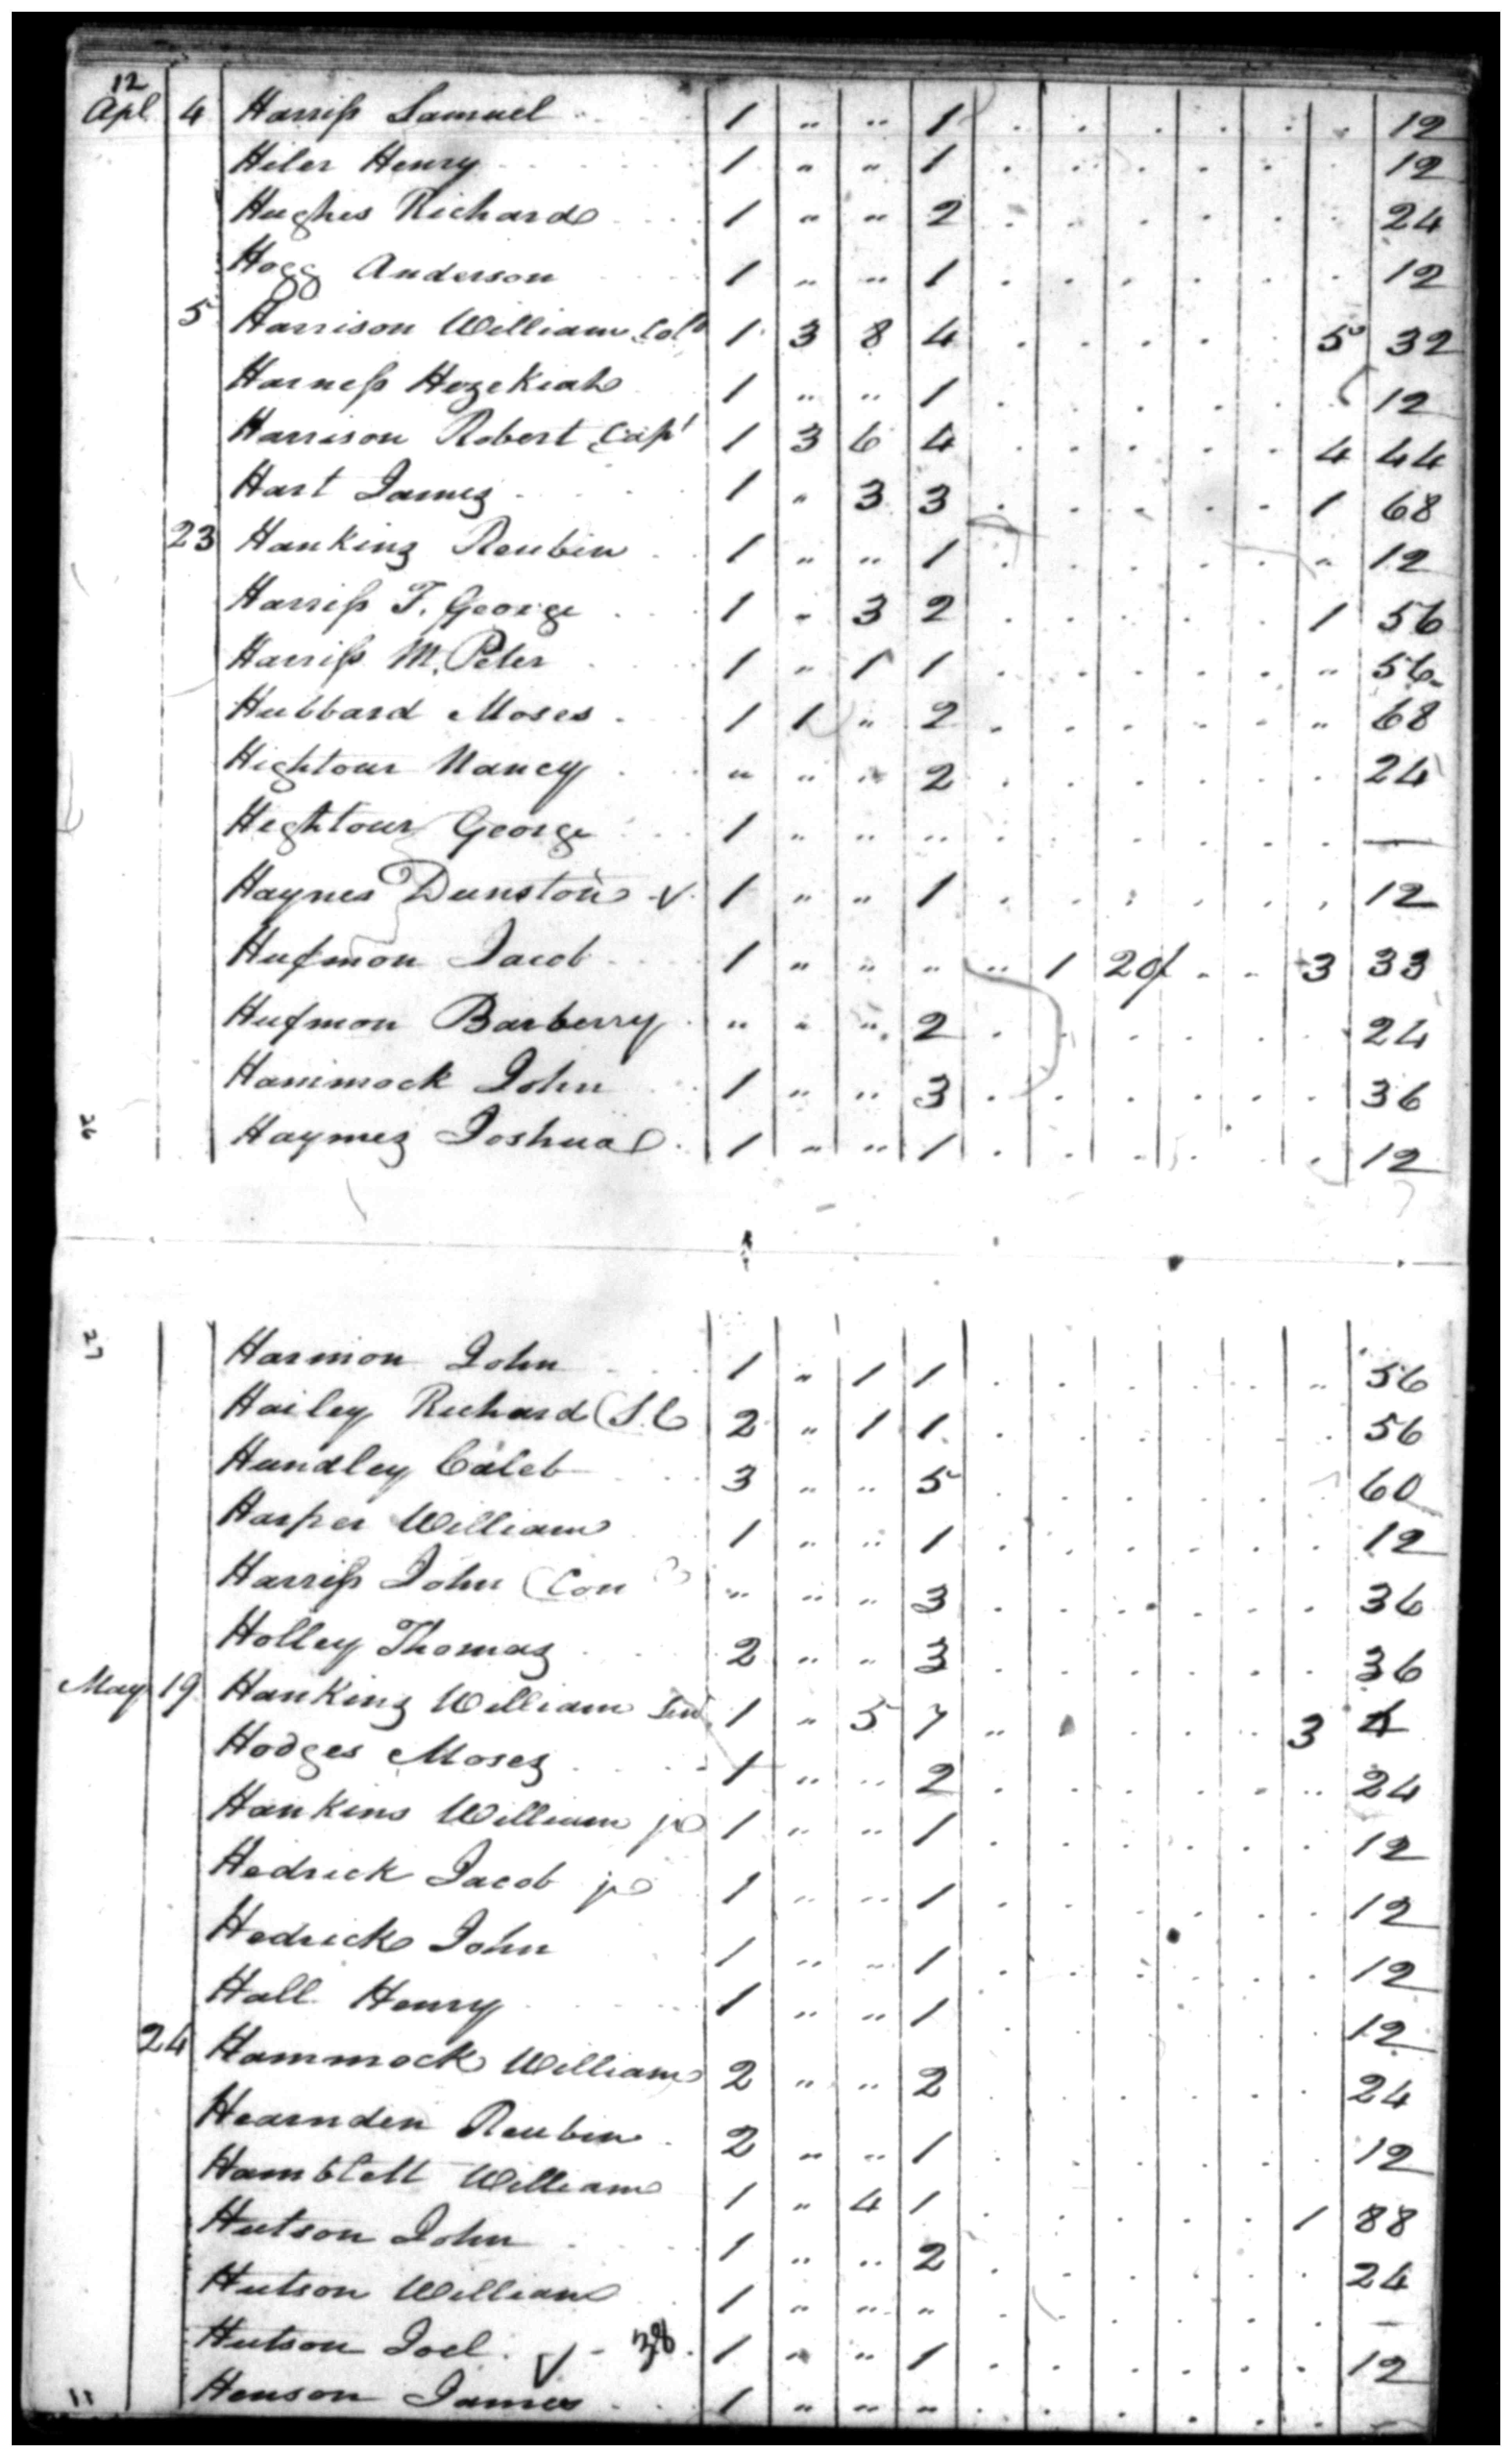 12
Apl 4 Harriss Samuel 1 " " 1 . . . . . . 12
Hiler Henry 1 " " 1 . . . . . . 12
Hughes Richard 1 " " 2 . . . . . . 24
Hogg Anderson 1 " " 1 . . . . . . 12
5 Harrison William Colo 1 3 8 4 . . . . . 5 32
Harness Hezekiah 1 " " 1 . . . . . . 12
Harrison Robert Capt 1 3 6 4 . . . . . 4 44
Hart James 1 " 3 3 . . . . . 1 68
23 Hankins Reubin 1 " " 1 . . . . . " 12
Harriss T. George 1 " 3 2 . . . . . 1 56
Harriss M. Peter 1 " 1 1 . . . . . " 56
Hubbard Moses 1 1 " 2 . . . . . " 68
Hightour Nancy " " " 2 . . . . . . 24
Hightour George 1 " " " . . . . . . —
Haynes Dunston v 1 " " 1 . . . . . . 12
Hufmon Jacob 1 " " " " 1 20/ . . 3 33
Hufmon Barberry " " " 2 . . . . . . 24
Hammock John 1 " " 3 . . . . . . 36
26 Haymes Joshua 1 " " 1 . . . . . . 12
27
Harmon John 1 " 1 1 . . . . . " 56
Hailey Richard (S.C 2 " 1 1 . . . . . . 56
Hundley Caleb 3 " " 5 . . . . . . 60
Harper William 1 " " 1 . . . . . . 12
Harriss John (Con " " " 3 . . . . . . 36
Holley Thomas 2 " " 3 . . . . . . 36
May 19 Hankins William Sen 1 " 5 7 " . . . . 3 4
Hodges Moses 1 " " 2 . . . . . " 24
Hankins William jr 1 " " 1 . . . . . . 12
Hedrick Jacob jr 1 " " 1 . . . . . . 12
Hedrick John 1 " " 1 . . . . . . 12
Hall Henry 1 " " 1 . . . . . . 12
24 Hammock William 2 " " 2 . . . . . . 24
Hearnden Reubin 2 " " 1 . . . . . . 12
Hamblett William 1 " 4 1 . . . . . 1 88
Hutson John 1 " " 2 . . . . . . 24
Hutson William 1 " " " . . . . . . —
Hutson Joel v - 38 1 " " 1 . . . . . . 12
11 Henson James 1 " " " . . . . . . —